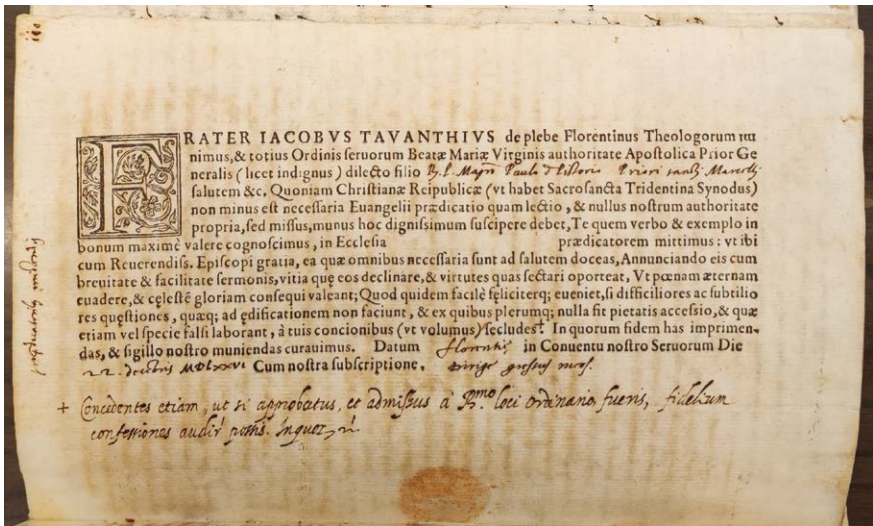 FRATER IACOBVS TAVANTHIVS de plebe Florentinus Theologorum mi
nimus, & totius Ordinis seruorum Beatæ Mariæ Virginis authoritate Apostolica Prior Ge
neralis (licet indignus) dilecto filio Pauli Priori
salutem &c. Quoniam Christianæ Reipublicæ (vt habet Sacrosancta Tridentina Synodus)
non minus est necessaria Euangelii prædicatio quam lectio, & nullus nostrum authoritate
propria, sed missus, munus hoc dignissimum suscipere debet, Te quem verbo & exemplo in
bonum maximè valere cognoscimus, in Ecclesia prædicatorem mittimus: vt ibi
cum Reuerendiss. Episcopi gratia, ea quæ omnibus necessaria sunt ad salutem doceas, Annunciando eis cum
breuitate & facilitate sermonis, vitia quę eos declinare, & virtutes quas sectari oporteat, Vt pœnam æternam
euadere, & cęlestē gloriam consequi valeant; Quod quidem facilè feliciterq; eueniet, si difficiliores ac subtilio
res quęstiones, quæq; ad ędificationem non faciunt, & ex quibus plerumq; nulla fit pietatis accessio, & quæ
etiam vel specie falsi laborant, à tuis concionibus (vt volumus) secludes. In quorum fidem has imprimen-
das, & sigillo nostro muniendas curauimus. Datum Florentię in Conuentu nostro Seruorum Die
22. MDLXXVI Cum nostra subscriptione. Dirige gressus meos.
+ Concedentes etiam, ut si approbatus, et admissus à R.mo loci ordinario fueris, fidelium
confessiones audire possis. In quor